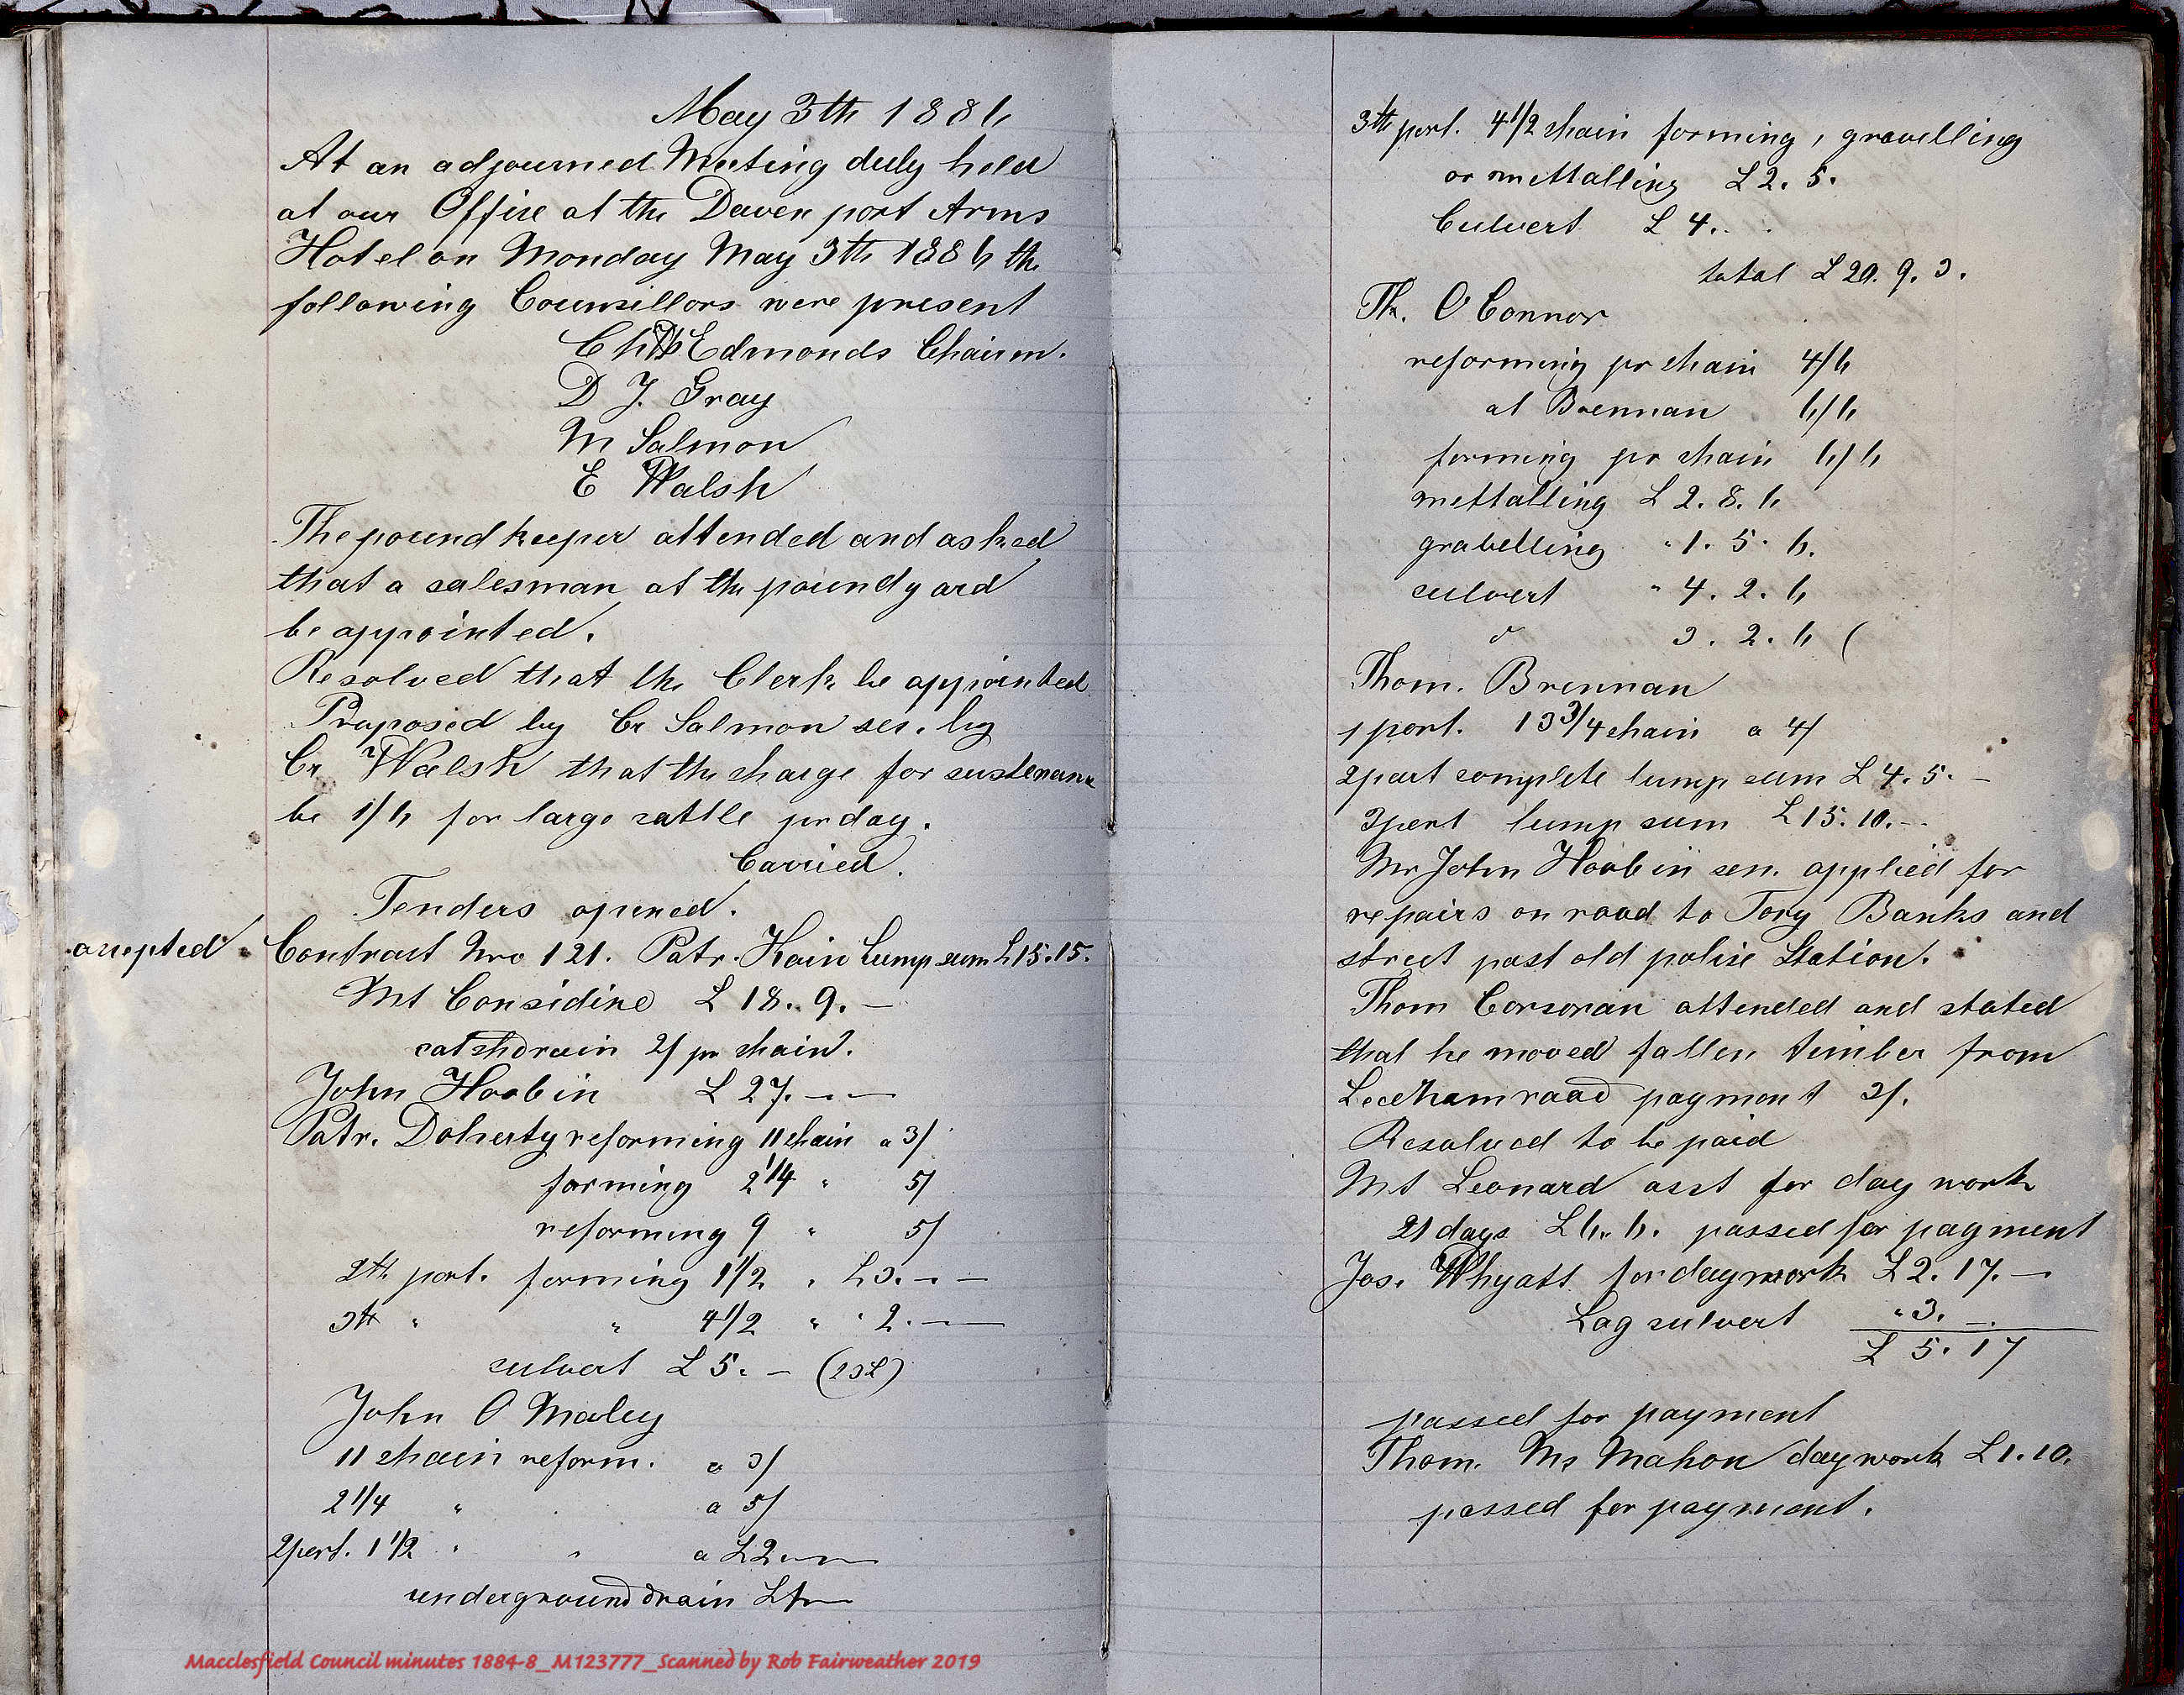 May 3th 1886
At an adjourned Meeting duly held
at our Office at the Davenport Arms
Hotel on Monday May 3th 1886 the
following Counsillors were present
Ch Edmonds Chairm.
D J. Gray
M Salmon
E Walsh
The poundkeeper attended and asked
that a salesman at the poundyard
be appointed.
Resolved that the Clerk be appointed
Proposed by Cr Salmon sec. by
Cr Walsh that the charge for sustenance
be 1/6 for large cattle pr day.
Carried.
Tenders opened.
accepted Contract Nro 121. Patr. Kain Lump sum £15.15.
Mt Considine £ 18. 9. —
catchdrain 2/ pr chain.
John Hoobin £ 27. — —
Patr. Doherty reforming 11 chain a 3/
forming 2 1/4 " 5/
reforming 9 " 5/
2th port. forming 1 1/2 " £3. — —
3th " " 4 1/2 " " 2. — —
culvert £ 5. — (23£)
John O Maley
11 chain reform. a 3/
2 1/4 " a 5/
2port. 1 1/2 " " a £2 — —
underground drain £4 —
3th port. 4 1/2 chain forming, gravelling
or mettalling £ 2. 5.
Culvert £ 4. .
total £ 20. 9. 3.
Th. O Connor
reforming pr chain 4/6
at Brennan 6/6
forming pr chain 6/6
mettalling £ 2. 8. 6
grabelling " 1. 5. 6.
culvert " 4. 2. 6
d 3. 2. 6 (
Thom. Brennan
1 port. 13 3/4 chain a 4/
2 port complete lump sum £ 4. 5. —
3 port lump sum £ 15. 10. —
Mr John Hoobin sen. applied for
repairs on road to Tory Banks and
street past old polise Station.
Thom Corcoran attended and stated
that he moved fallen timber from
Leechamroad payment 3/.
Resolved to be paid
Mt Leonard acct for day work
21 days £ 6. 6. passed for payment
Jos. Whyatt for daywork £ 2. 17. —
Lag culvert " 3. —
£ 5. 17
passed for payment
Thom. Mc Mahon daywork £ 1. 10.
passed for payment.
Macclesfield Council minutes 1884-8_M123777_Scanned by Rob Fairweather 2019